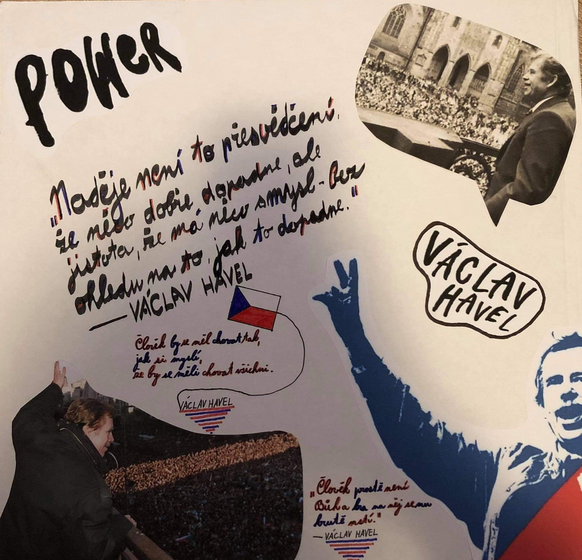 POWER
"Naděje není to přesvědčení,
že něco dobře dopadne, ale
jistota, že má něco smysl - bez
ohledu na to, jak to dopadne."
— VÁCLAV HAVEL
VÁCLAV
HAVEL
Člověk by se měl chovat tak,
jak si myslí,
že by se měli chovat všichni.
VÁCLAV HAVEL
"Člověk prostě není
Bůh a hra na něj se mu
krutě mstí."
— VÁCLAV HAVEL